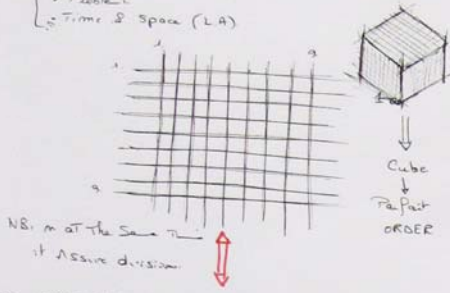 Time & Space (LA)
1
9
1
9
Cube
Parfait
ORDER
NB. at The Same
it Assure division.